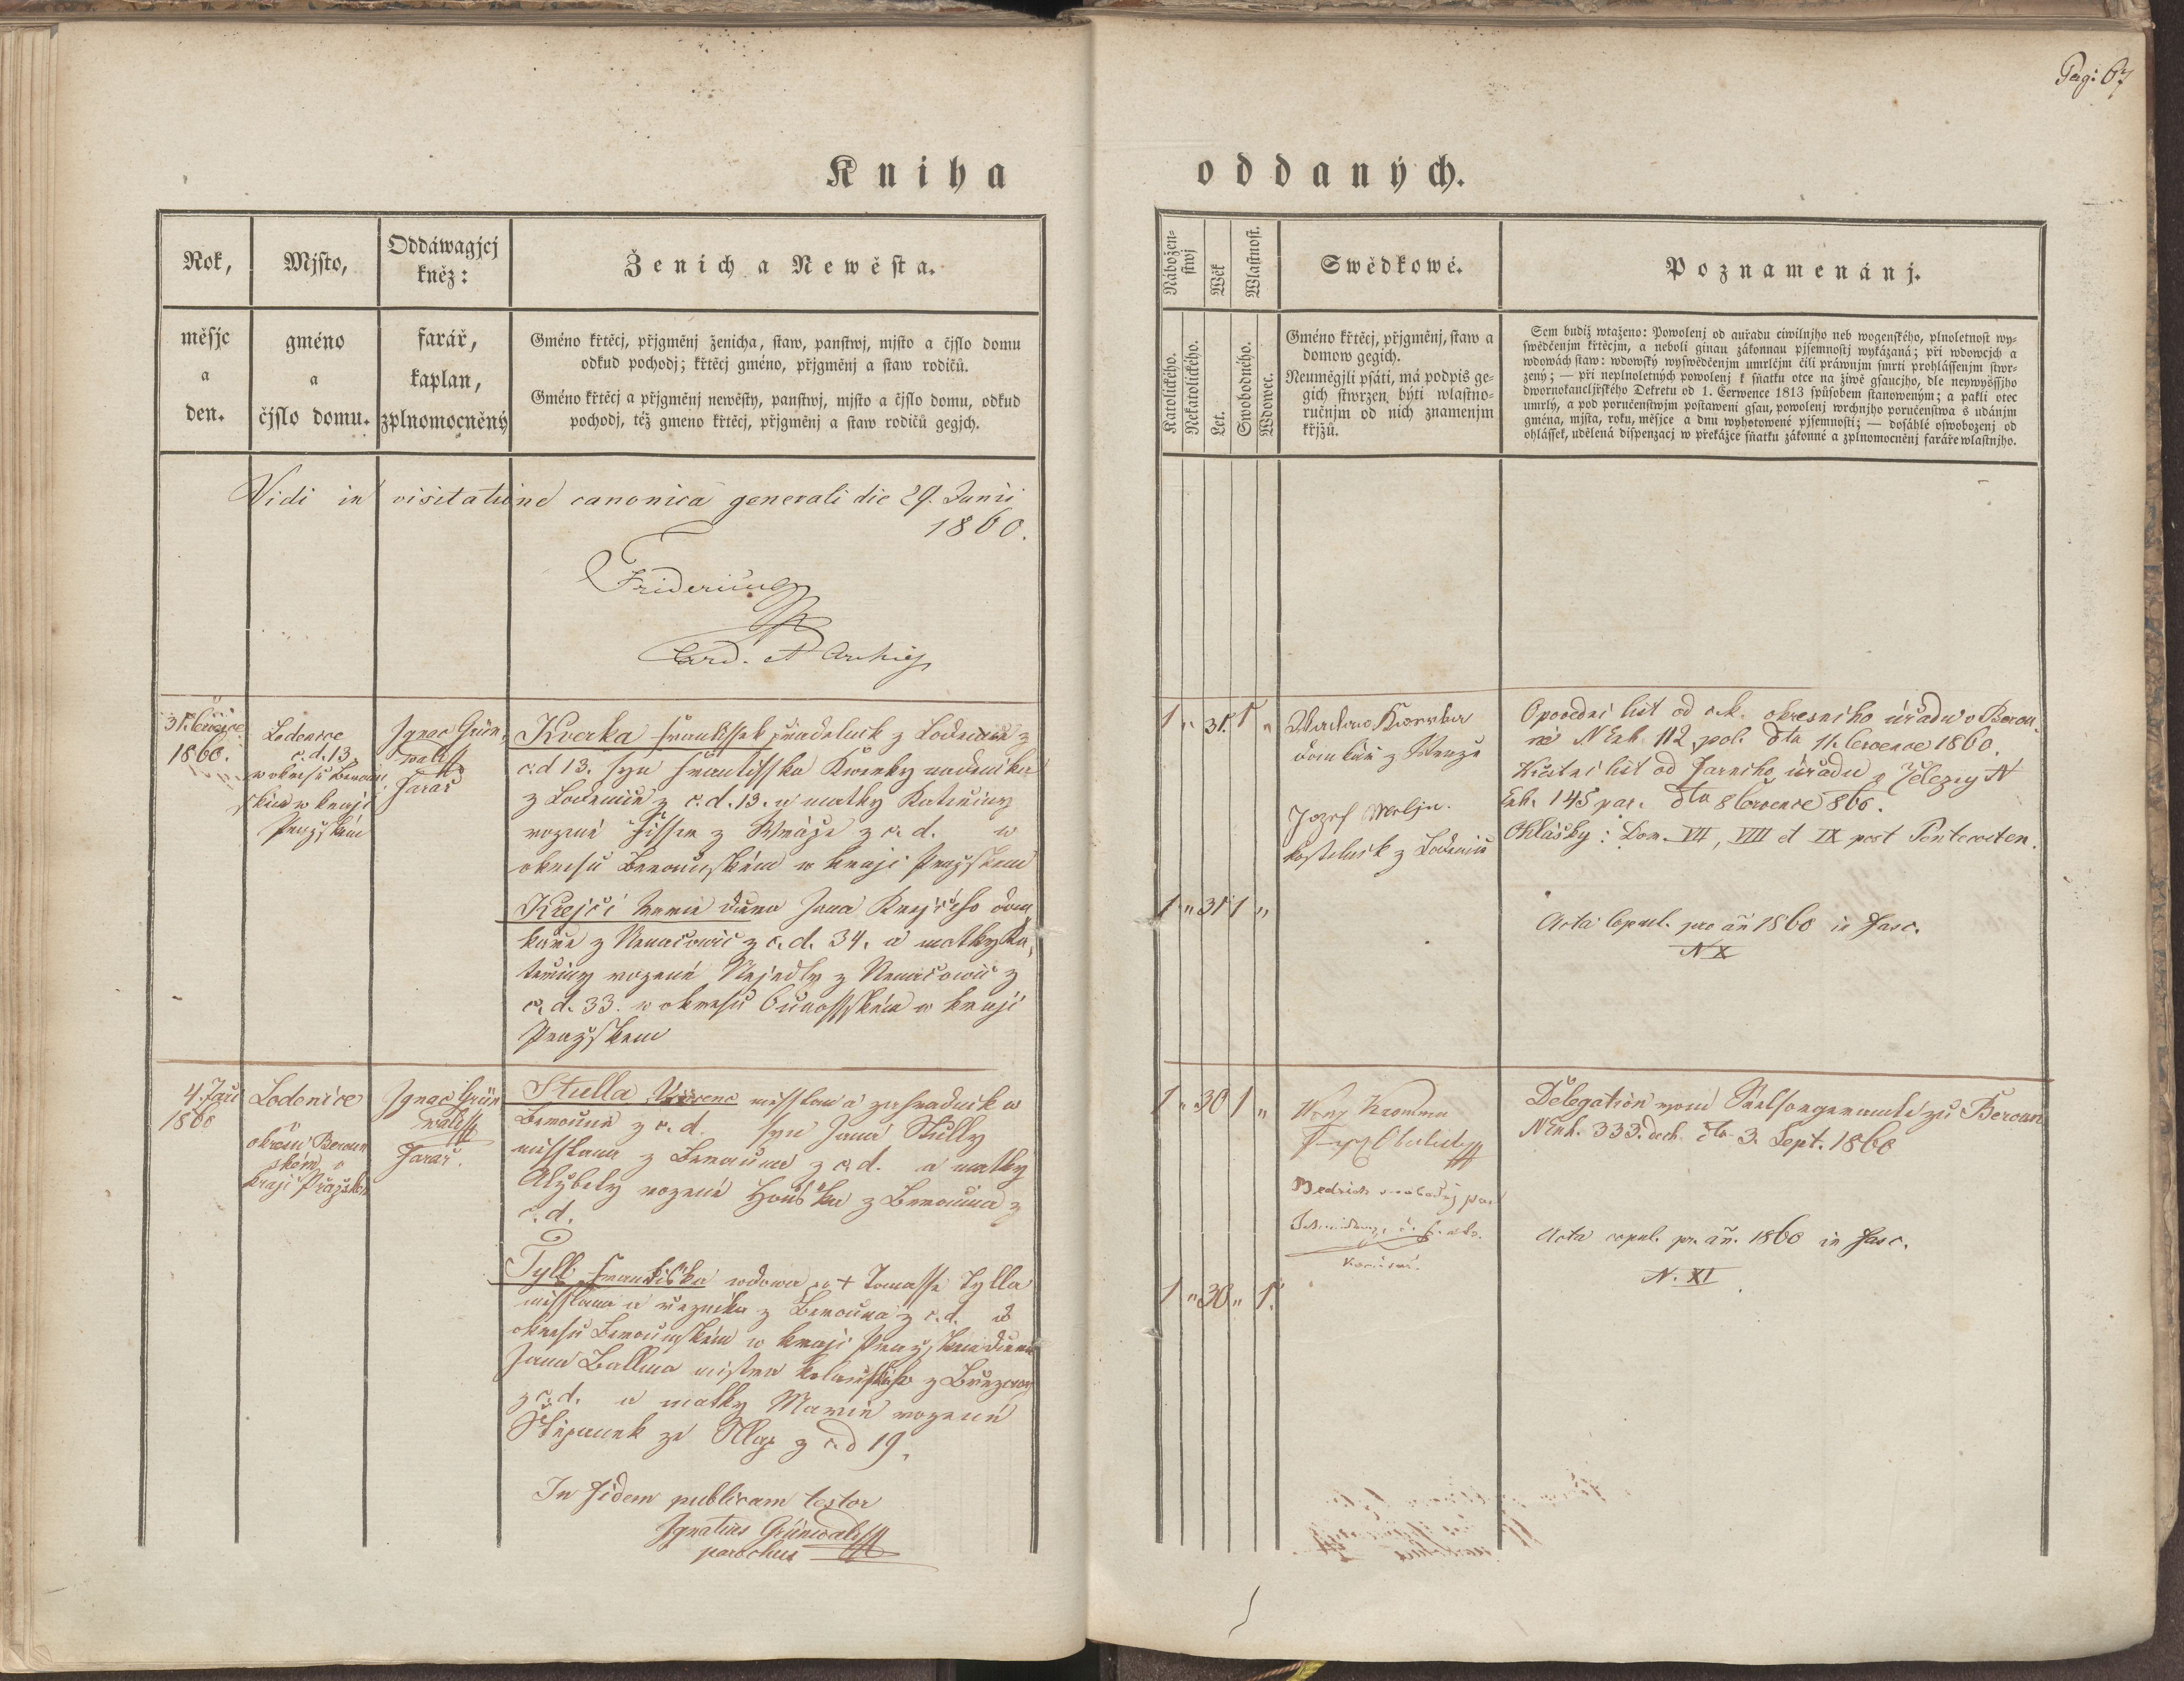 Pag: 67
Kniha oddaných.
Rok,
měsjc
a
den.
Mjsto,
gméno
a
čjslo domu.
Oddáwagjcj
kněz:
farář,
kaplan,
zplnomocněný
Ženich a Newěsta.
Gméno křtěcj, přjgměnj ženicha, staw, panstwj, mjsto a čjslo domu
odkud pochodj; křtěcj gméno, přjgměnj a staw rodičů.
Gméno křtěcj a přjgměnj newěsty, panstwj, mjsto a čjslo domu, odkud
pochodj, též gmeno křtěcj, přjgměnj a staw rodičů gegjch.
Nábožen-
stwj
Wěk
Wlastnost.
Katolického.
Nekatolického.
Let.
Swobodného.
Wdowec.
Swědkowé.
Gméno křtěcj, přjgměnj, staw a
domow gegjch.
Neuměgjli psáti, má podpis ge-
gich stwrzen býti wlastno-
ručnjm od nich znamenjm
křjžů.
Poznamenánj.
Sem budiž wtaženo: Powolenj od auřadu ciwilnjho neb wogenského, plnoletnost wy-
swědčenjm křtěcjm, a neboli ginau zákonnau pjsemnostj wykázaná; při wdowcjch a
wdowách staw: wdowský wyswědčenjm umrlčjm čili práwnjm smrti prohlássenjm stwr-
zený; — při neplnoletných powolenj k sňatku otce na žiwě gsaucjho, dle neywyššjho
dwornokancljřského Dekretu od 1. Čerwence 1813 spůsobem stanoweným; a pakli otec
umrlý, a pod poručenstwjm postaweni gsau, powolenj wrchnjho poručenstwa s udánjm
gména, mjsta, roku, měsjce a dnu wyhotowené pjsemnosti; — dosáhlé oswobozenj od
ohlášek, udělená dispenzacj w překážce sňatku zákonné a zplnomocněnj faráře wlastnjho.
Vidi in visitatione canonica generali die 29. Junii
1860.
Fridericus
Card. et Archiep
31. července
1860.
Lodenice
č. d. 13.
w okresu Beroun
ském w kraji
Pražském
Ignac Grün
wald
Farář
Kverka Frantissek přadelník z Lodenic z
č.d 13. syn Frantisska Kwerky nadeníka
z Lodenic z č. d. 13. a matky Kateřiny
rozené Fisser z Wráže z č. d. w
okresu Berounském w kraji Pražském
Krejčí Marie dcera Jana Krejčího dom
káře z Nenačowic z č. d. 34. a matky Ka
teřiny rozené Nejedly z Nenačowic z
č. d. 33. w okresu Ounosském w kraji
Pražském
1 " 31. 1 "
Kwerka
domkář z Wraze
Jozef
kostelník z Lodenic
Opovední list od c.k. okresního úřadu v Berou
ně N Exh. 112 pol. dto 11. července 1860.
Křestní list od Farního úřadu z Železný N
Exh. 145 par. dto 8 července 860.
Ohlášky: Dom. VII, VIII et IX post Pentecosten.
1 " 31 1 "
Acta copul. pro añ 1860 in Fasc.
N X
4. Září
1860
Lodenice
okresu Beroun
ském v
kraji Pražském
Ignac Grün
wald
Farář.
Stulla Vavrencměsstan a zahradník w
Berouně z č. d. syn Jana Stully
měsstana z Berouna z č. d. a matky
Alžbety rozené Houška z Berouna z
č. d.
Tyll Františka wdowa po + Tomasse Tylla
měsstana a řezníka z Berouna z č. d. w
okresu Berounském w kraji Pražském dcera
Jana Ballina mistra kolařského z Březowy
z č. d. a matky Marie rozené
Štěpanek ze Slap z č. d 19.
1 " 30 1 "
Bedřich
Delegation vom Seelsorgeramte zu Beroun
NExh. 333. dech. dto 3. Sept. 1860
Acta copul. pr. añ. 1860 in Fasc.
N. XI
1 " 30 " 1.
In fidem publicam testor
Ignatius Grünwald
parochus